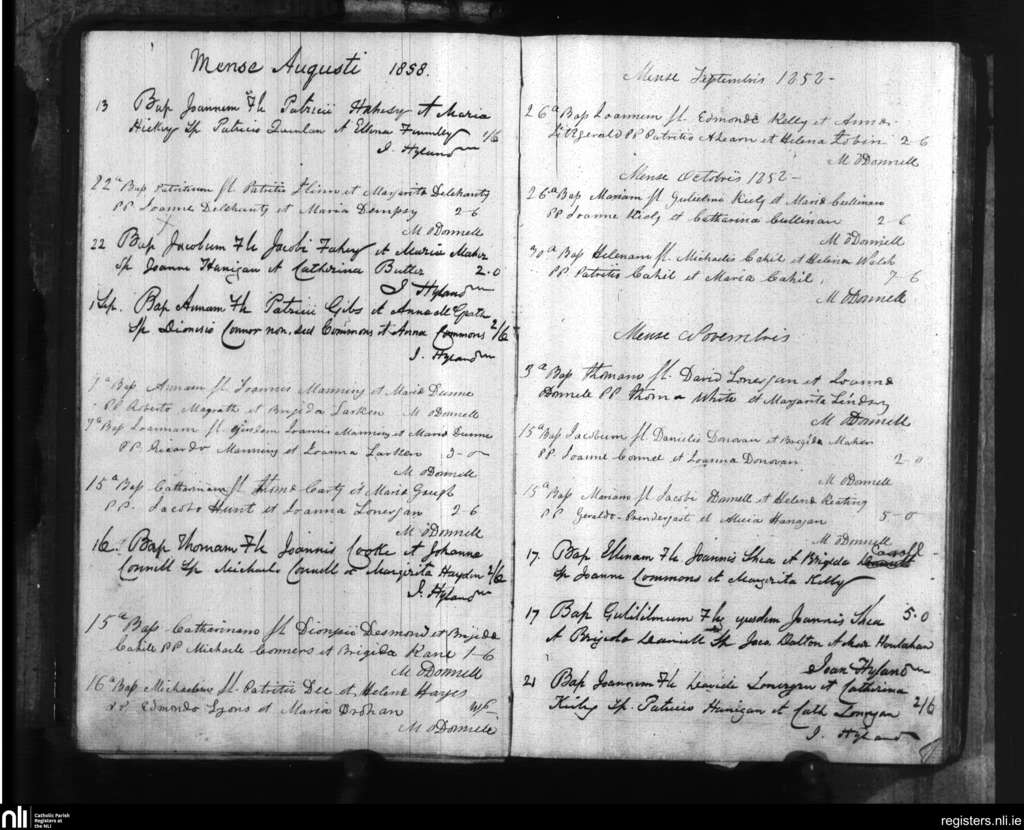 Mense Augusti 1858.
13 Bap Joannem Fh Patricii Fahesy et Maria
Hickey Sp Patricio Quinlan et Ellena 1/6
J. Hyland
22a Bap Patritium fl. Patritii Flinn et Margarita Delehanty
PP Joanne Delehanty et Maria Dempsy 2-6
M ODonnell
22 Bap Jacobum Fh Jacobi Fahey et Maria Maher
Sp Joanne Hanigan et Catherina Butler 2-0
J Hyland
1 Sep. Bap Annam Fh Patricii Gibs et Anna McGrath
Sp Dionisio Connor non sed Commons et Anna Commons 2/6
J. Hyland
7a Bap Annam fl. Joannis Manning et Maria Dunne
PP Roberto Magrath et Brigida Larken M ODonnell
7a Bap Joannam fl ejusdem Joannis Manning et Maria Dunne
PP. Ricardo Manning et Joanna Larken 3-0
M ODonnell
15a Bap Catharinam fl Thoma Carty et Maria
PP. Jacobo Hunt et Joanna Lonergan 2-6
M ODonnell
16. Bap Thomam Fh Joannis Cooke et Johanna
Connell Sp Michaele Connell et Margirita Haydin 2/6
J. Hyland
15a Bap Catharinam fl Dionysii Desmond et Brigida
Cahill PP Michaele Conners et Brigida Kane 1-6
M ODonnell
16a Bap Michaelem fl Patritii Dee et Helena Hayes
PP Edmondo Lyons et Maria Orohan
M ODonnell
Mense Septembris 1852-
26a Bap Joannem fl. Edmondi Kelly et Anna
Fitzgerald PP Patritio Ahearn et Helena Tobin 2-6
M ODonnell
Mense Octobris 1852-
26a Bap Mariam fl Gulielmi Kiely et Maria Cullinan
PP Joanne Kiely et Catharina Cullinan 2-6
M ODonnell
30a Bap Helenam fl. Michaelis Cahil et Helena Walsh
PP Patritio Cahil et Maria Cahil. 7-6
M ODonnell
Mense Novembris
3a Bap Thomam fl. David Lonergan et Joanna
Donnell PP Thoma White et Margarita Lindsey
M ODonnell
15a Bap Jacobum fl Danielis Donovan et Brigida Maher
PP Joanne Connel et Joanna Donovan 2-0
M ODonnell
15a Bap Mariam fl Jacobi Donnell et Helena Keating
PP Geraldo Prendergast et Alicia Hanagan 5-0
M ODonnell
17. Bap Ellenam Fh Joannis Shea et Brigida
Sp Joanne Commons et Margrita Kelly
17 Bap Gulilelmum Fh ejusdem Joannis Shea 5.0
et Brigida Sp Jaco Dalton et Houlahan
Joan Hyland
21 Bap Joannem Fh Davidis Lonergan et Catherina
Kiely Sp. Patricio Hanigan et Cath Lonergan 2/6
J. Hyland
nli Catholic Parish
Registers at
the NLI
registers.nli.ie